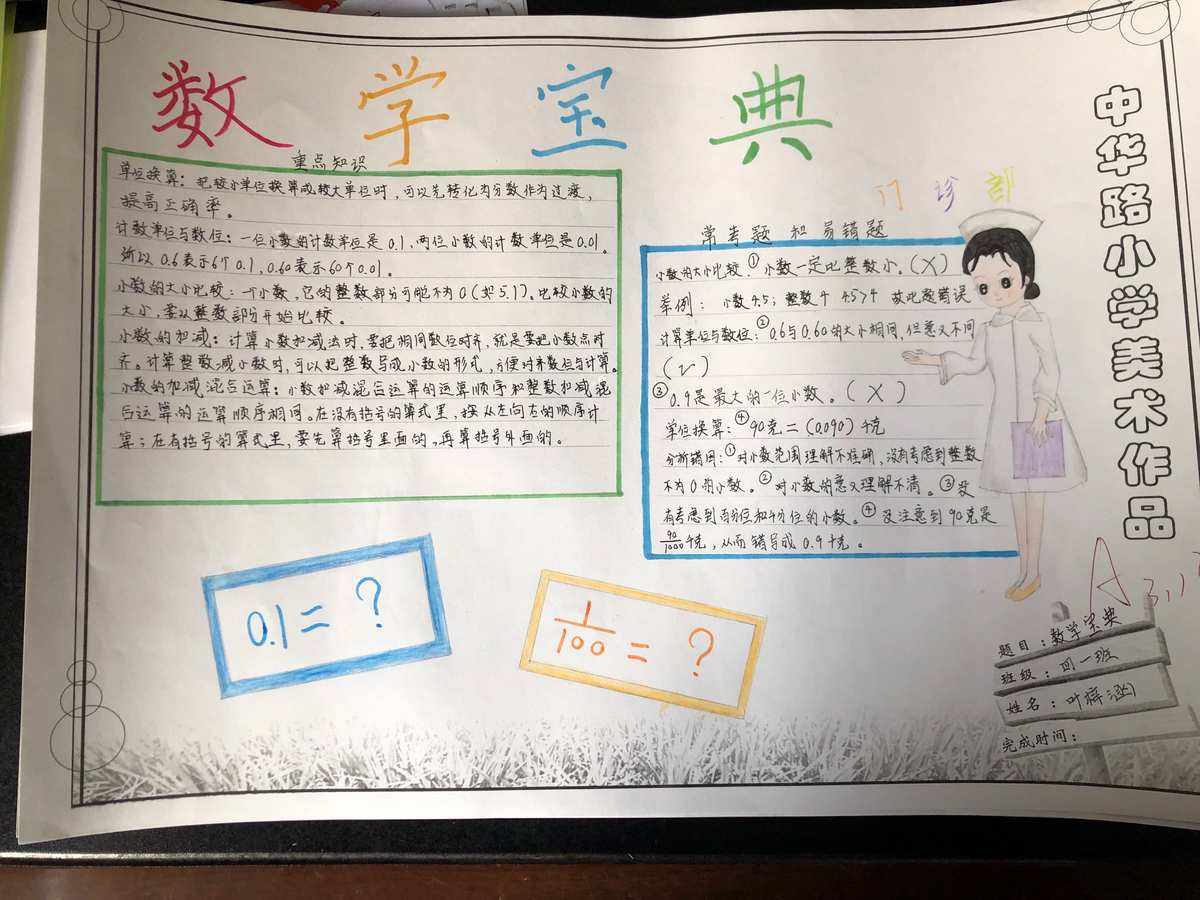 数学宝典
重点知识
单位换算：把较小单位换算成较大单位时，可以先转化为分数作为过渡，
提高正确率。
计数单位与数位：一位小数的计数单位是0.1，两位小数的计数单位是0.01。
所以0.6表示6个0.1，0.60表示60个0.01。
小数的大小比较：一个小数，它的整数部分可能不为0（如5.1）。比较小数的
大小，要从整数部分开始比较。
小数的加减：计算小数加减法时，要把相同数位对齐，就是要把小数点对
齐。计算整数减小数时，可以把整数写成小数的形式，方便对齐数位与计算。
小数的加减混合运算：小数加减混合运算的运算顺序和整数加减混
合运算的运算顺序相同。在没有括号的算式里，按从左向右的顺序计
算；在有括号的算式里，要先算括号里面的，再算括号外面的。
门诊部
常考题和易错题
小数的大小比较：①小数一定比整数小。（X）
举例：小数4.5；整数4 4.5>4 故此题错误
计算单位与数位：②0.6与0.60的大小相同，但意义不同
（√）
③0.9是最大的一位小数。（X）
单位换算：④90克＝(0.090)千克
分析错因：①对小数范围理解不准确，没有考虑到整数
不为0的小数。②对小数的意义理解不清。③没
有考虑到百分位和千分位的小数。④没注意到90克是
90/1000千克，从而错写成0.9千克。
0.1＝？
1/100＝？
中华路小学美术作品
A
题目：数学宝典
班级：四一班
姓名：叶梓涵
完成时间：